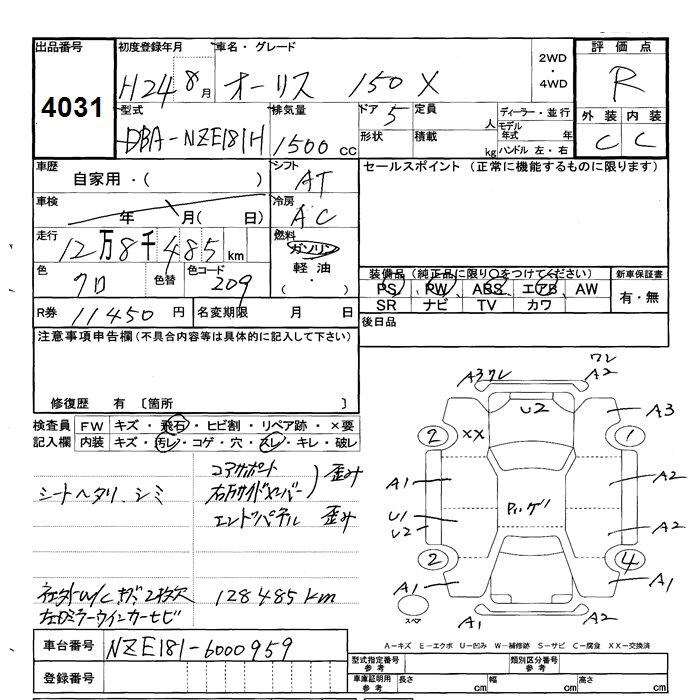 出品番号
4031
初度登録年月
H24 8 月
車名・グレード
オーリス 150 X
2WD
・
4WD
評価点
R
型式
DBA-NZE181H
排気量
1500 cc
ドア 5
定員
人
形状
積載
kg
ディーラー・並行
モデル
年式 年
ハンドル 左・右
外装 内装
C C
車歴
自家用・( )
シフト
AT
セールスポイント (正常に機能するものに限ります)
車検
年 月( 日)
冷房
AC
走行
12万8千485km
燃料
ガソリン
軽油
( ・ )
色
クロ
色替
色コード
209
装備品 (純正品に限り○をつけてください)
新車保証書
PS PW ABS エアB AW
SR ナビ TV カワ
有・無
R券 11450 円
名変期限 月 日
後日品
注意事項申告欄(不具合内容等は具体的に記入して下さい)
修復歴 有 〔箇所 〕
検査員
記入欄
FW キズ・飛石・ヒビ割・リペア跡・×要
内装 キズ・汚レ・コゲ・穴・スレ・キレ・破レ
シートヘタリ、シミ
コアサポート
右フロントサイドメンバー
歪み
エンドパネル 歪み
128485km
左ドアミラーウインカーヒビ
A3 ワレ
ワレ
A2
U2
A3
2
XX
1
A1
A2
U1
U2
A2
2
4
A1
A1
スペア
A1
A2
車台番号
NZE181-6000959
登録番号
A-キズ E-エクボ U-凹み W-補修跡 S-サビ C-腐食 XX-交換済
型式指定番号
参考
類別区分番号
参考
車庫証明用
参考
長さ cm
幅 cm
高さ cm